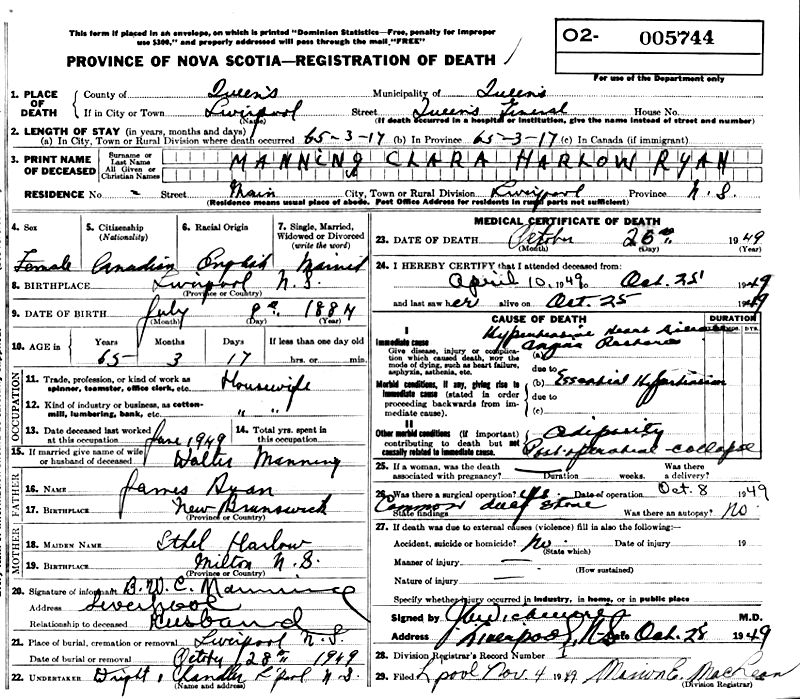 This form if placed in an envelope, on which is printed "Dominion Statistics—Free, penalty for improper
use $300," and properly addressed will pass through the mail "FREE"
PROVINCE OF NOVA SCOTIA—REGISTRATION OF DEATH
O2- 005744
For use of the Department only
1. PLACE OF DEATH { County of Queen's Municipality of Queen's
If in City or Town Liverpool Street Queens General House No.
(Name) (If death occurred in a hospital or institution, give the name instead of street and number)
2. LENGTH OF STAY (in years, months and days)
(a) In City, Town or Rural Division where death occurred 65-3-17 (b) In Province 65-3-17 (c) In Canada (if immigrant)
3. PRINT NAME OF DECEASED { Surname or Last Name All Given or Christian Names } MANNING CLARA HARLOW RYAN
RESIDENCE No - Street Main City, Town or Rural Division Liverpool Province N.S.
(Residence means usual place of abode. Post Office Address for residents in rural parts not sufficient)
4. Sex 5. Citizenship (Nationality) 6. Racial Origin 7. Single, Married, Widowed or Divorced (write the word)
Female Canadian English Married
8. BIRTHPLACE Liverpool N.S.
(Province or Country)
9. DATE OF BIRTH July 8th 1884
(Month) (Day) (Year)
10. AGE in { Years Months Days If less than one day old
65 3 17 hrs. or min.
OCCUPATION
11. Trade, profession, or kind of work as spinner, teamster, office clerk, etc. Housewife
12. Kind of industry or business, as cotton-mill, lumbering, bank, etc. " "
13. Date deceased last worked at this occupation June 1949 14. Total yrs. spent in this occupation
15. If married give name of wife or husband of deceased Walter Manning
FATHER
16. NAME James Ryan
17. BIRTHPLACE New Brunswick
(Province or Country)
MOTHER
18. MAIDEN NAME Ethel Harlow
19. BIRTHPLACE Milton N.S.
(Province or Country)
20. Signature of informant B.W.C. Manning
Address Liverpool
Relationship to deceased Husband
21. Place of burial, cremation or removal Liverpool N.S.
Date of burial or removal October 28th 1949
22. UNDERTAKER Wright & Chandler L'pool N.S.
(Name and address)
MEDICAL CERTIFICATE OF DEATH
23. DATE OF DEATH October 25th 1949
(Month) (Day) (Year)
24. I HEREBY CERTIFY that I attended deceased from:
April 10, 1949 to Oct. 25 1949
and last saw her alive on Oct. 25 1949
CAUSE OF DEATH DURATION
I
Immediate cause
Hypertensive heart disease
Give disease, injury or complication which caused death, nor the mode of dying, such as heart failure, asphyxia, asthenia, etc.
(a) Angina Pectoris
due to
Morbid conditions, if any, giving rise to immediate cause (stated in order proceeding backwards from immediate cause).
(b) Essential Hypertension
due to
(c)
II
Other morbid conditions (if important) contributing to death but not causally related to immediate cause.
Adiposity
Post-operative collapse
25. If a woman, was the death associated with pregnancy? Duration weeks. Was there a delivery?
26. Was there a surgical operation? yes Date of operation Oct. 8 1949
State findings Common duct stone Was there an autopsy? No
27. If death was due to external causes (violence) fill in also the following:—
Accident, suicide or homicide? No Date of injury 19
(State which)
Manner of injury —
(How sustained)
Nature of injury —
Specify whether injury occurred in industry, in home, or in public place
Signed by M.D.
Address Liverpool, N.S. Date Oct. 28 1949
28. Division Registrar's Record Number
29. Filed L'pool Nov. 4 1949 Marion E. MacLean
(Division Registrar)